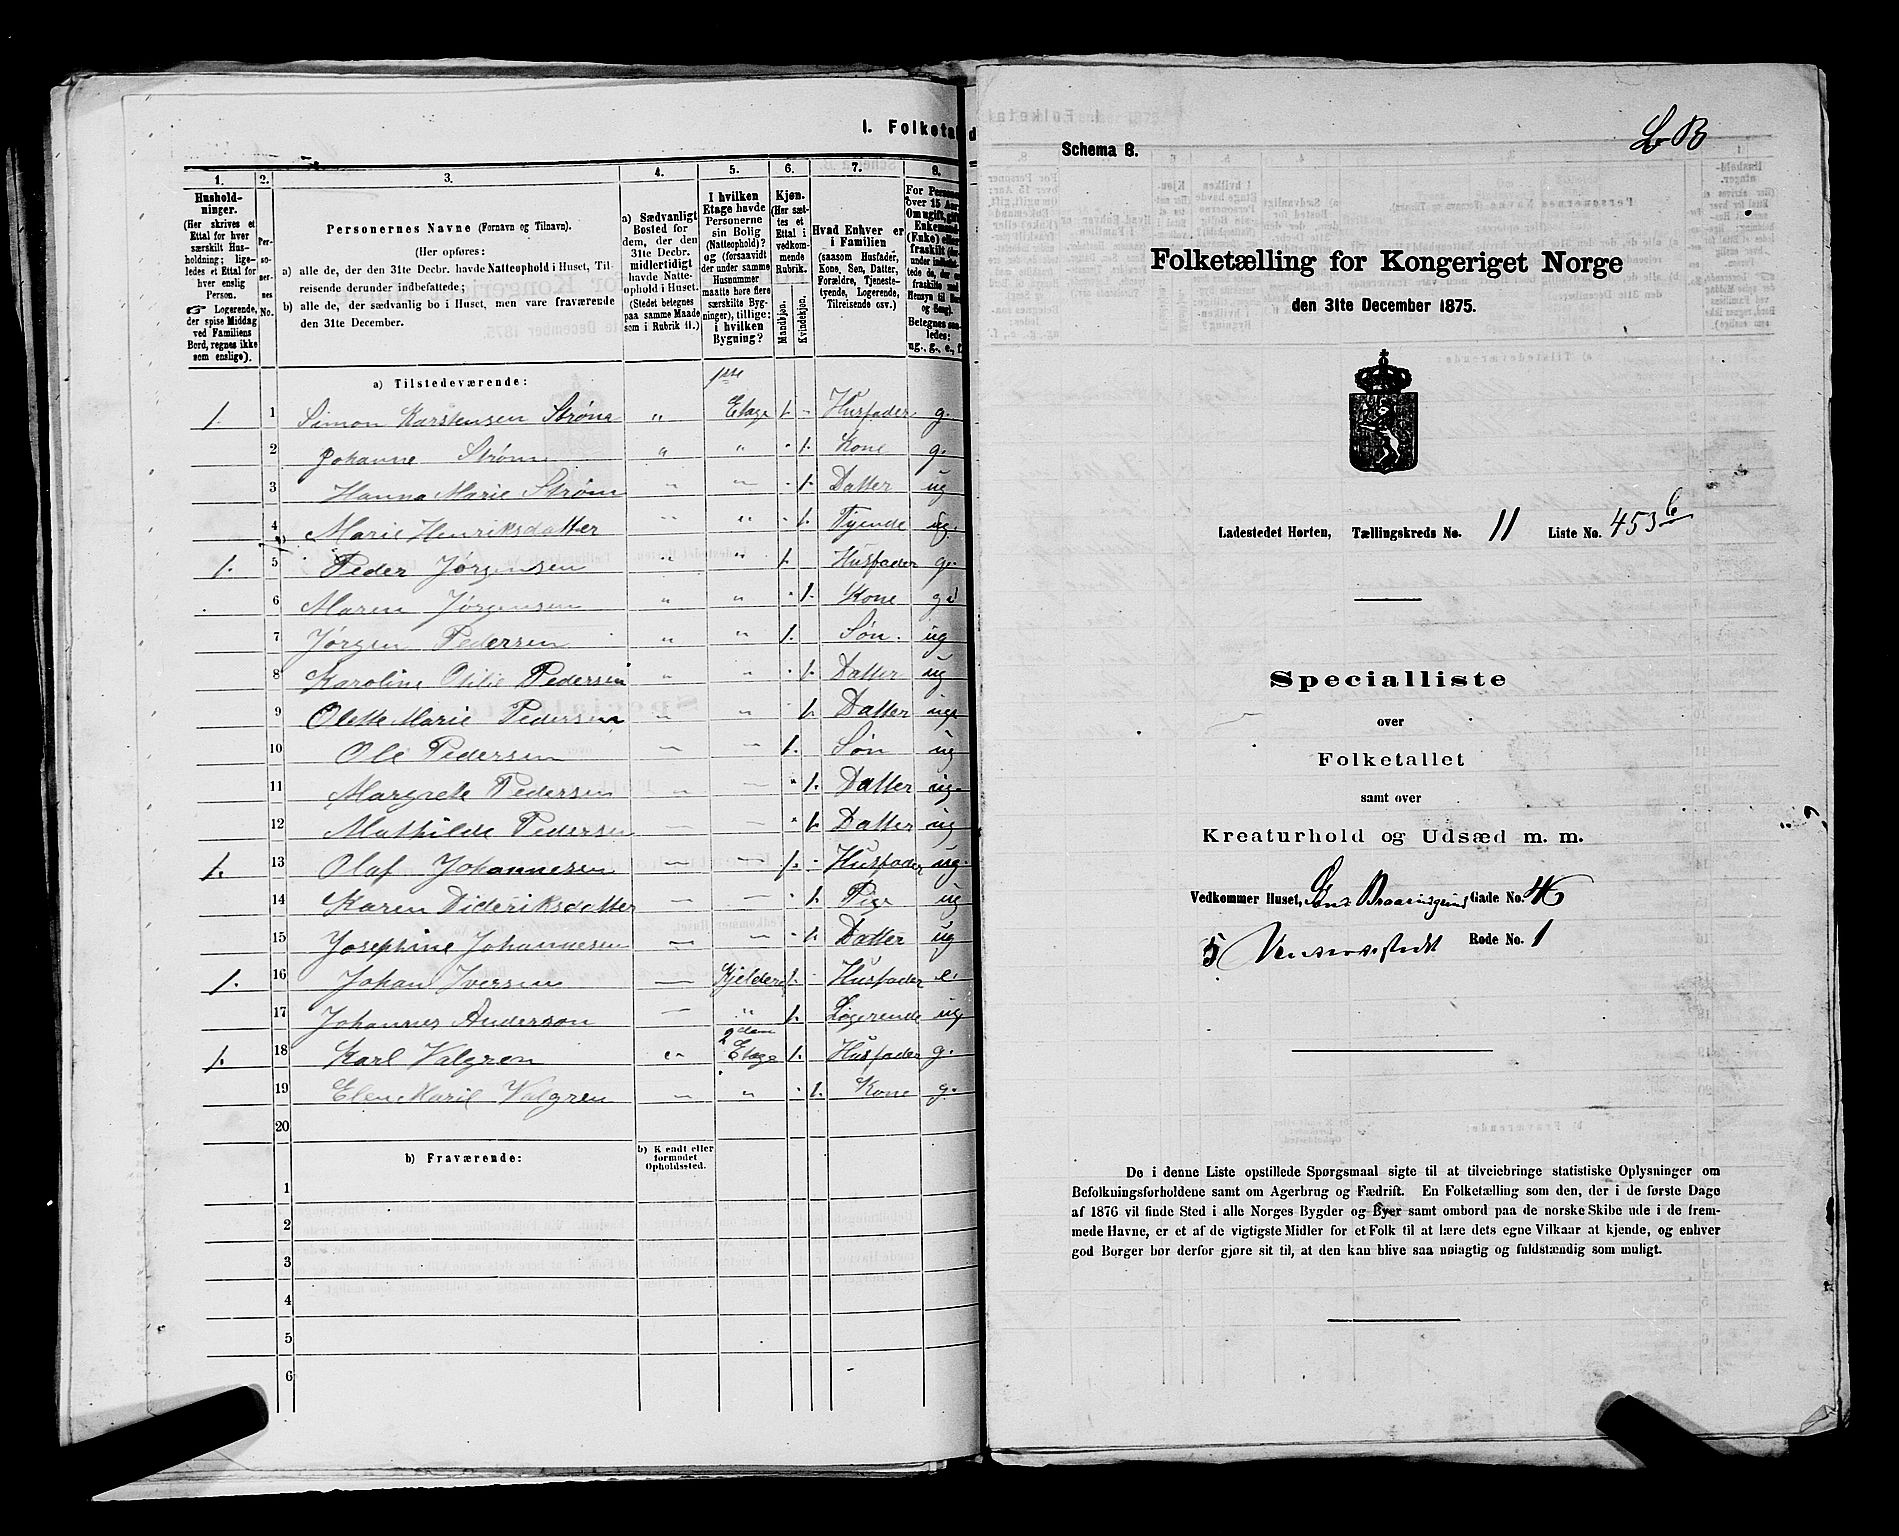 I. Folketal
1. 2. 3. 4. 5. 6. 7. 8.
Husholdninger.
(Her skrives et
Ettal for hver
særskilt Husholdning;
ligeledes et Ettal for
hver enslig
Person.
Logerende,
der spise Middag
ved Familiens
Bord, regnes ikke
som enslige).
Personernes No.
Personernes Navne (Fornavn og Tilnavn).
(Her opføres:
a) alle de, der den 31te Decbr. havde Natteophold i Huset, Tilreisende derunder indbefattede;
b) alle de, der sædvanlig bo i Huset, men vare fraværende
den 31te December.
a) Sædvanligt
Bosted for
dem, der den
31te Decbr.
midlertidigt
havde Natteophold i Huset.
(Stedet betegnes
paa samme Maade
som i Rubrik 11.)
I hvilken
Etage havde
Personerne
sin Bolig
(Natteophold)?
og (forsaavidt
der under samme
Husnummer
maatte høre flere
særskilte Bygninger), tillige:
i hvilken
Bygning?
Kjøn.
(Her sættes et
Ettal i
vedkommende
Rubrik.
Mandkjøn. Kvindekjøn.
Hvad Enhver er
i Familien
(saasom Husfader,
Kone, Søn, Datter,
Forældre, Tjenestetyende, Logerende,
Tilreisende osv.)
a) Tilstedeværende: 1ste
1. 1 Simon Karstensen Strøm " Etage 1. - Husfader g.
2 Johanne Strøm " " " 1. Kone g.
3 Hanna Marie Strøm " " " 1. Datter ug
4 Marie Henriksdatter " " " 1. Tyende ug.
1. 5 Peder Jørgensen " " 1. Husfader g.
6 Maren Jørgensen " " " 1. Kone g
7 Jørgen Pedersen " " 1. Søn. ug
8 Karoline Otilie Pedersen " " " 1. Datter ug
9 Olette Marie Pedersen " " 1. Datter ug
10 Ole Pedersen — — 1. Søn ug
11 Margrete Pedersen " — " 1. Datter ug.
12 Mathilde Pedersen — — " 1. Datter ug
1. 13 Olaf Johannesen — — 1. - Husfader ug.
14 Karen Dideriksdatter — — " 1. Pige ug
15 Josephine Johannesen — " " 1. Datter ug
1. 16 Johan Iversen — Kjelder 1. - Husfader e.
17 Johannes Anderson — " 1. Logerende ug
2den
1. 18 Karl Valgren " Etage 1. Husfader g.
19 Elen Marie Valgren " " " 1. Kone g.
20
b) Fraværende: b) Kendt eller
formodet
Opholdssted.
1
2
3
4
5
6
Schema B.
Folketælling for Kongeriget Norge
den 31te December 1875.
Ladestedet Horten, Tællingskreds No. 11 Liste No. 453 b
Specialliste
over
Folketallet
samt over
Kreaturhold og Udsæd m. m.
Vedkommer Huset, Gade No. 46
5 Rode No. 1
De i denne Liste opstillede Spørgsmaal sigte til at tilveiebringe statistiske Oplysninger om
Befolkningsforholdene samt om Agerbrug og Fædrift. En Folketælling som den, der i de første Dage
af 1876 vil finde Sted i alle Norges Bygder og Byer samt ombord paa de norske Skibe ude i de fremmede
Havne, er et af de vigtigste Midler for et Folk til at lære dets egne Vilkaar at kjende, og enhver
god Borger bør derfor gjøre sit til, at den kan blive saa nøiagtig og fuldstændig som muligt.